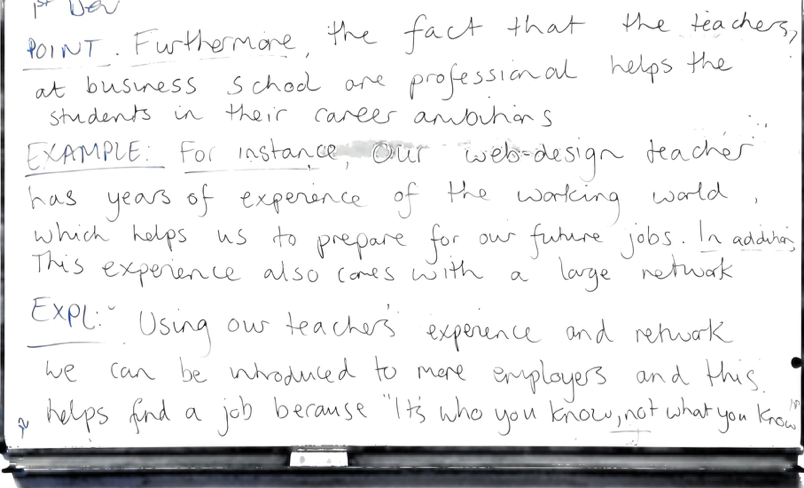 1st Dev
POINT. Furthermore, the fact that the teachers,
at business school are professional helps the
students in their career ambitions
EXAMPLE: For instance, Our web-design teacher
has years of experience of the working world,
which helps us to prepare for our future jobs. In addition,
This experience also comes with a large network
EXPL: Using our teacher's experience and network
we can be introduced to more employers and this
helps find a job because "It's who you know, not what you know"